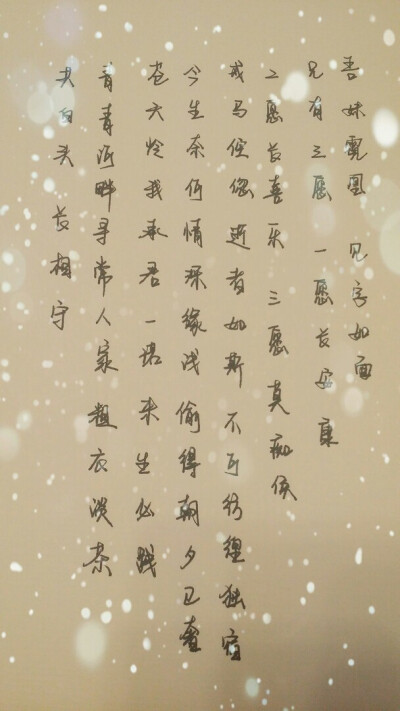 吾妹霓凰 见字如面
兄有三愿 一愿长安康
二愿长喜乐 三愿莫痴候
戎马倥偬逝者如斯不可彷徨独宿
今生奈何情深缘浅偷得朝夕已奢
苍天怜我承君一诺来生必践
青青河畔寻常人家粗衣淡茶
共白头 长相守